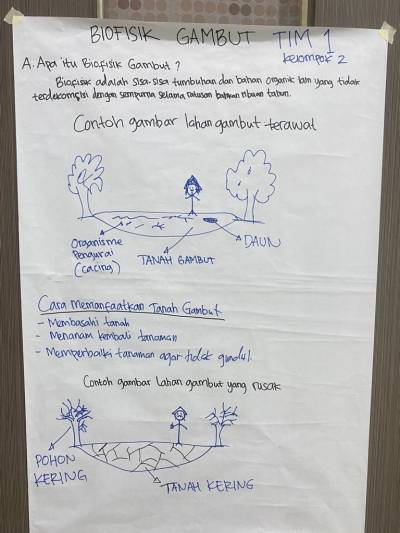 BIOFISIK GAMBUT TIM 1
kelompok 2
A. Apa itu Biofisik Gambut ?
Biofisik adalah sisa-sisa tumbuhan dan bahan organik lain yang tidak
terdekomposisi dengan sempurna selama ratusan bahkan ribuan tahun.
Contoh gambar lahan gambut terawat
Organisme
Pengurai
(cacing)
TANAH GAMBUT
DAUN
Cara Memanfaatkan Tanah Gambut
- Membasahi tanah
- Menanam kembali tanaman
- Memperbaiki tanaman agar tidak gundul.
Contoh gambar lahan gambut yang rusak
POHON
KERING
TANAH KERING